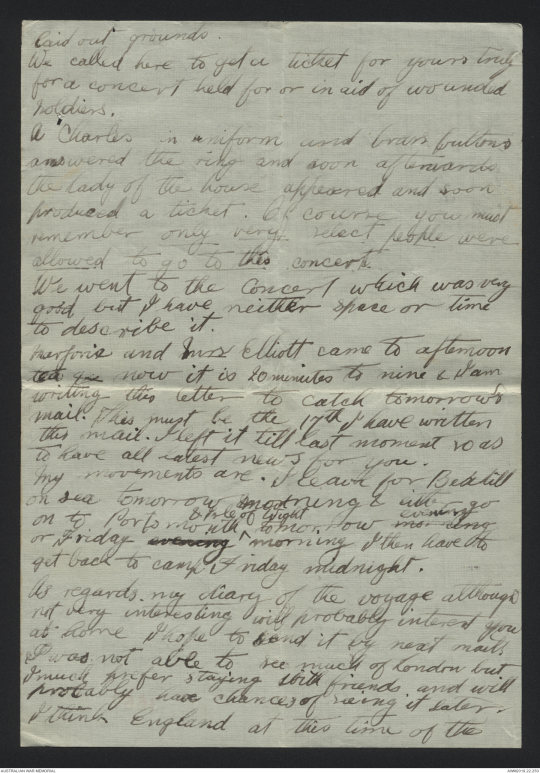 laid out grounds.
We called here to get a ticket for yours truly
for a concert held for or in aid of wounded
soldiers.
A Charles in uniform and brass buttons
answered the ring and soon afterwards
the lady of the house appeared and soon
produced a ticket. Of course you must
remember only very select people were
allowed to go to this concert.
We went to the Concert which was very
good but I have neither space or time
to describe it.
Marjorie and Mrs Elliott came to afternoon
tea and now it is 20 minutes to nine & I am
writing this letter to catch tomorrow's
mail. This must be the 17th I have written
this mail. I left it till last moment so as
to have all latest news for you.
My movements are. I leave for Bexhill
on sea tomorrow morning & will go
on to Portsmouth & Isle of Wight tomor. row evening
or Friday evening morning I then have to
get back to camp Friday midnight.
As regards my diary of the voyage although
not very interesting will probably interest you
at home I hope to send it by next mail.
I was not able to see much of London but
I much prefer staying with friends and will
probably have chances of seeing it later.
I think England at this time of the
AUSTRALIAN WAR MEMORIAL